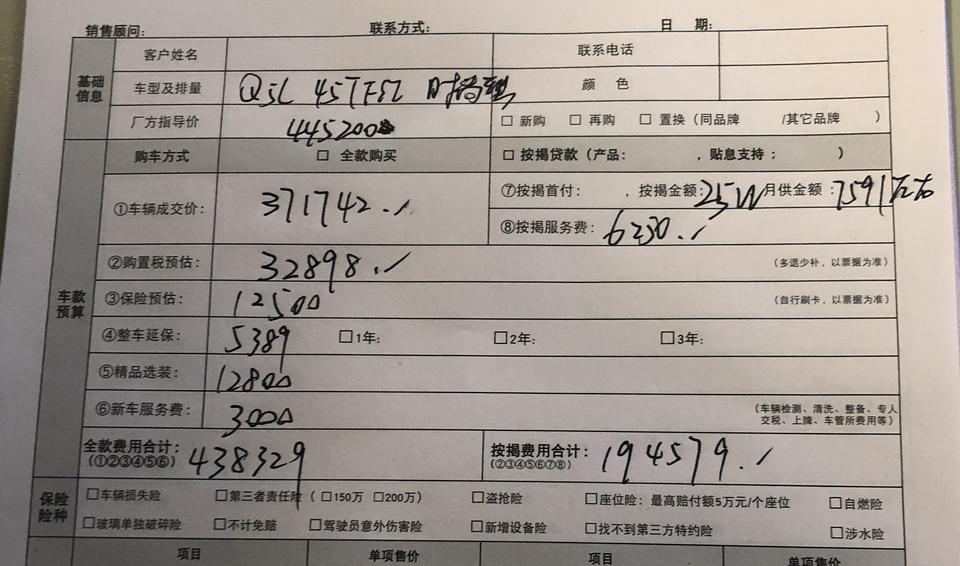 销售顾问: 联系方式: 日 期:
基础信息 客户姓名 联系电话
车型及排量 Q5L 45TFSI 时尚型 颜 色
厂方指导价 445200 □ 新购 □ 再购 □ 置换（同品牌 /其它品牌 ）
车款预算 购车方式 □ 全款购买 □ 按揭贷款（产品: ，贴息支持； ）
①车辆成交价: 371742. ⑦按揭首付: ，按揭金额: 25W 月供金额: 7591
⑧按揭服务费: 6230.
②购置税预估: 32898. （多退少补，以票据为准）
③保险预估: 12500 （自行刷卡，以票据为准）
④整车延保: 5389 □1年: □2年: □3年:
⑤精品选装: 12800
⑥新车服务费: 3000 （车辆检测、清洗、整备、专人
交税、上牌、车管所费用等）
全款费用合计: 438329 按揭费用合计: 194579.
(①②③④⑤⑥) (②③④⑤⑥⑦⑧)
保险险种 □车辆损失险 □第三者责任险（ □150万 □200万） □盗抢险 □座位险: 最高赔付额5万元/个座位 □自燃险
□玻璃单独破碎险 □不计免赔 □驾驶员意外伤害险 □新增设备险 □找不到第三方特约险 □涉水险
项目 单项售价 项目 单项售价